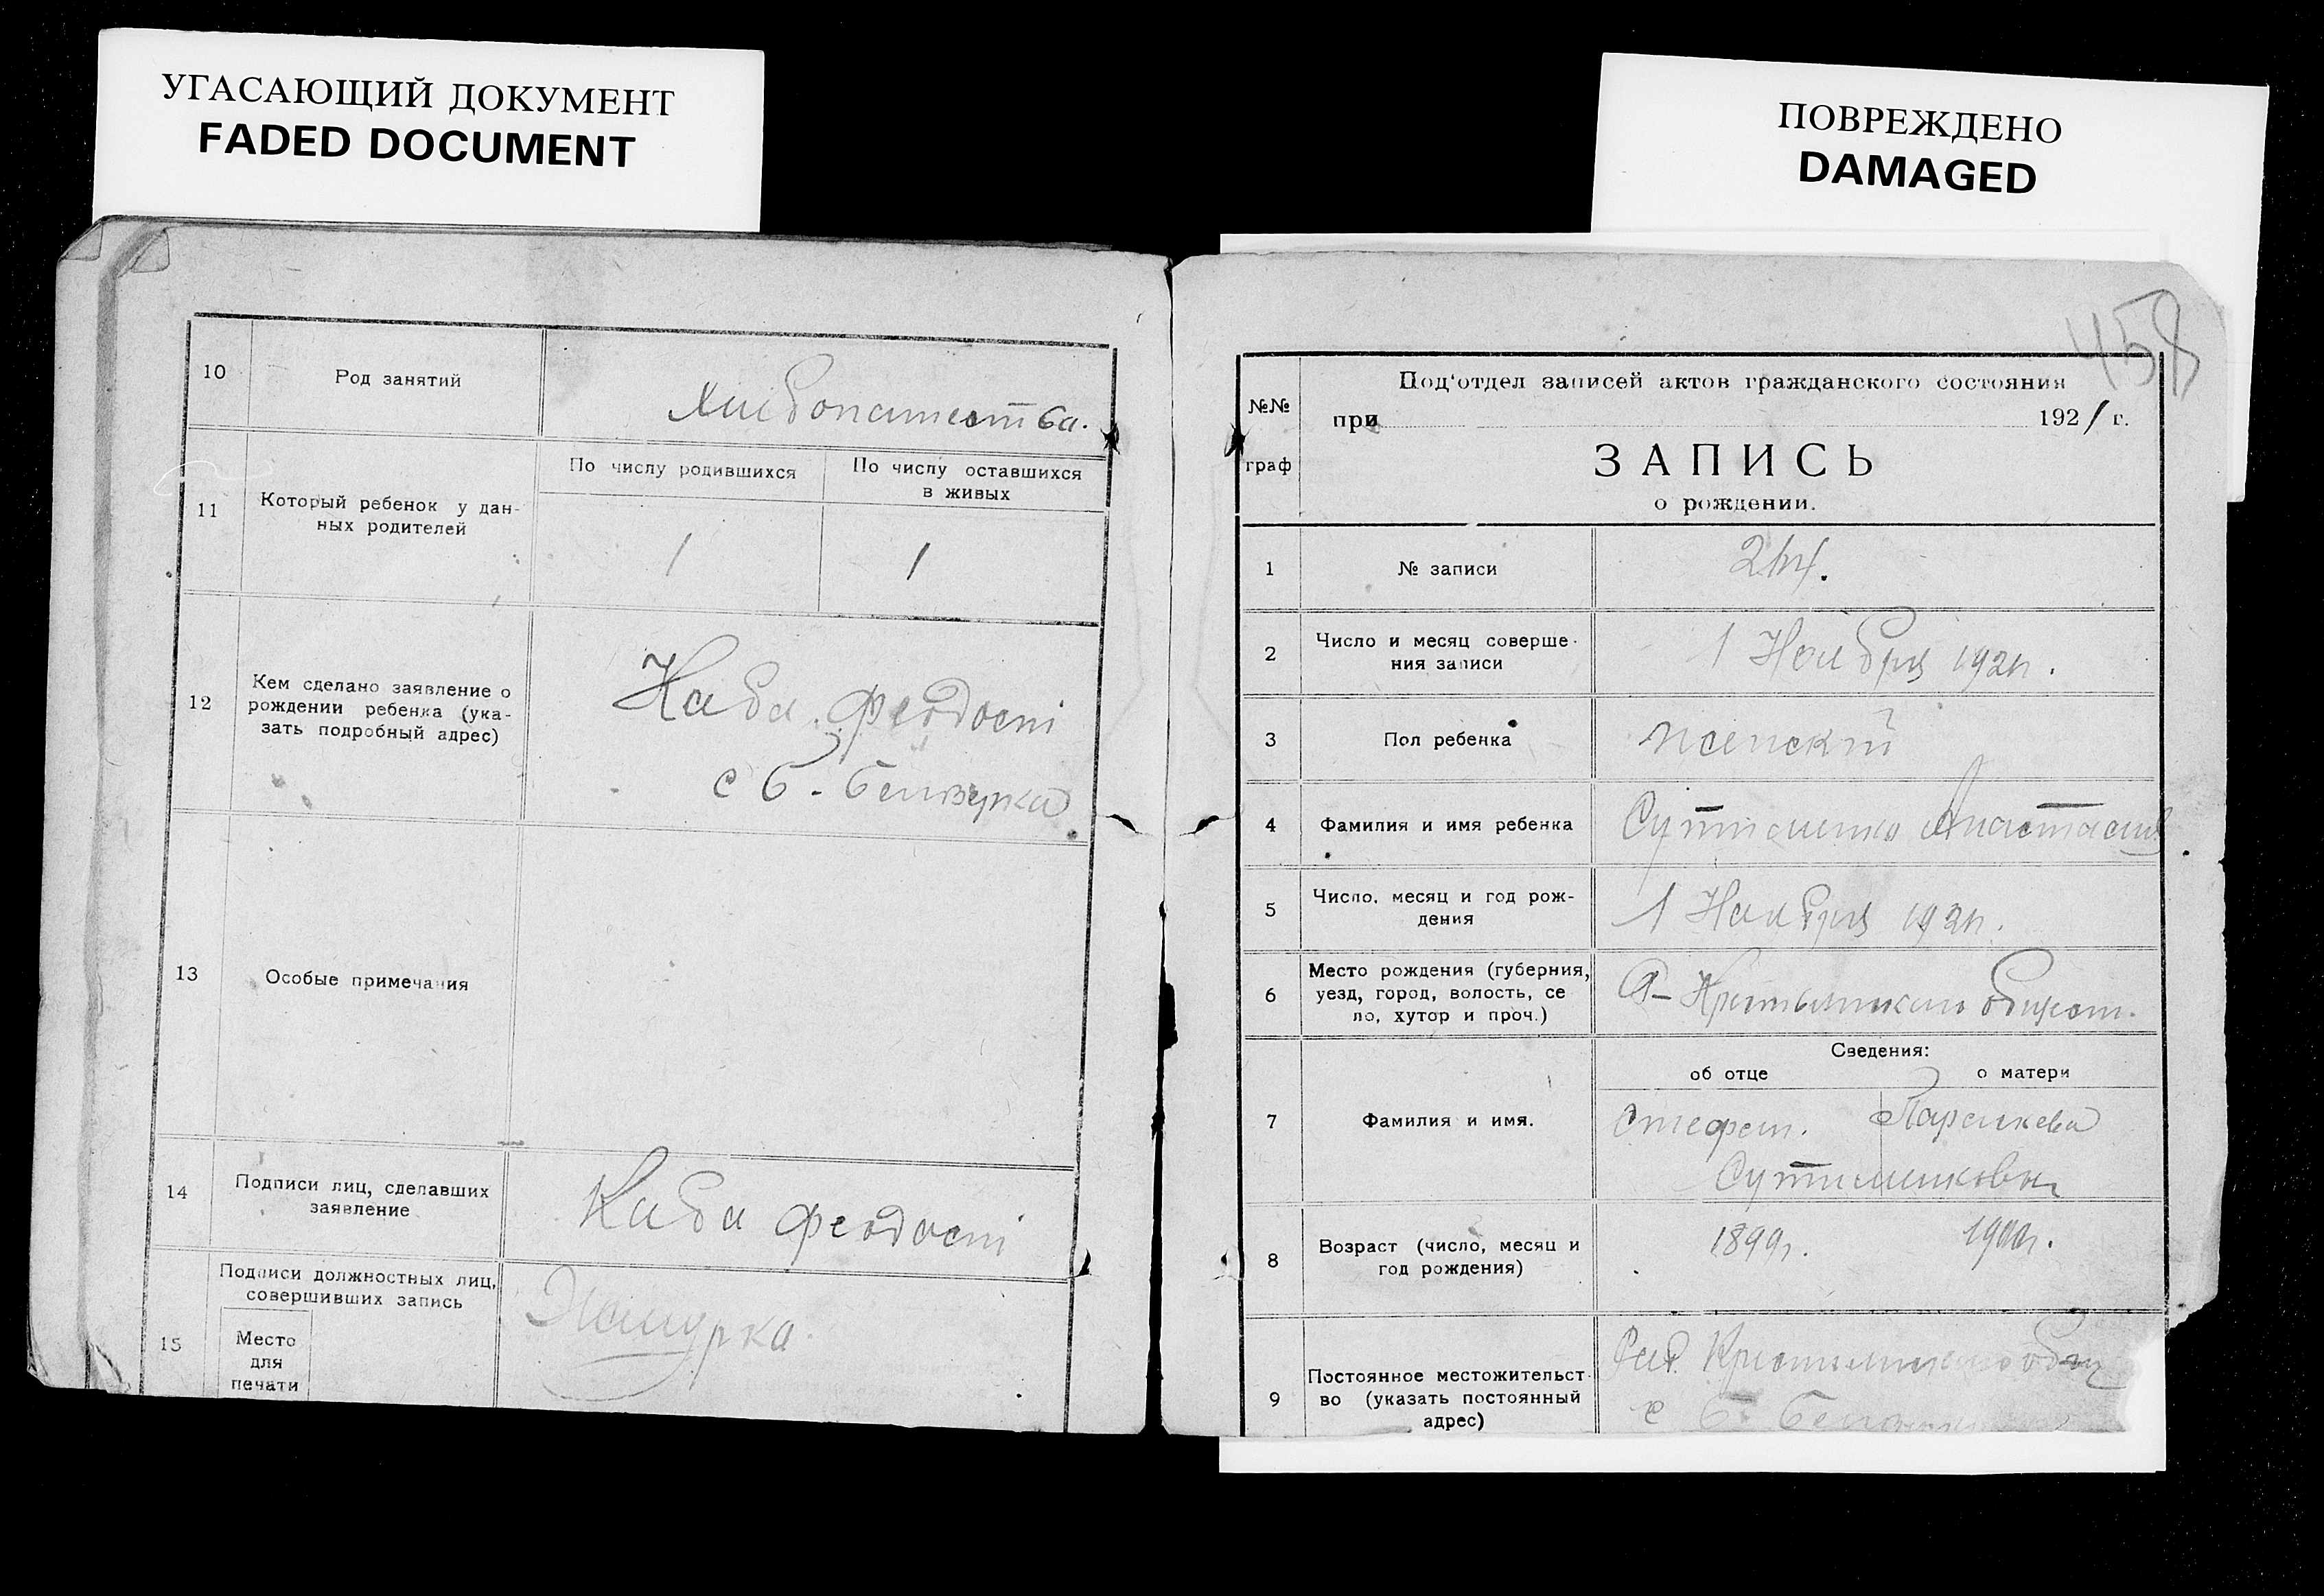 УГАСАЮЩИЙ ДОКУМЕНТ
FADED DOCUMENT
ПОВРЕЖДЕНО
DAMAGED
10
Род занятий
11
Который ребенок у дан-
ных родителей
По числу родившихся
По числу оставшихся
в живых
1
1
12
Кем сделано заявление о
рождении ребенка (ука-
зать подробный адрес)
Каба Феодосий
с Б.
13
Особые примечания
14
Подписи лиц, сделавших
заявление
Каба Феодосий
15
Подписи должностных лиц,
совершивших запись
Место
для
печати
458
№№
граф
Под'отдел записей актов гражданского состояния
при 1921 г.
ЗАПИСЬ
о рождении.
1
№ записи
2
Число и месяц соверше-
ния записи
1 Ноября 1921г.
3
Пол ребенка
женский
4
Фамилия и имя ребенка
Анастасия
5
Число, месяц и год рож-
дения
1 Ноября 1921г.
6
Место рождения (губерния,
уезд, город, волость, се
ло, хутор и проч.)
7
Фамилия и имя.
Сведения:
об отце
о матери
Стефан.
Параскева
8
Возраст (число, месяц и
год рождения)
1899г.
1900г.
9
Постоянное местожительст-
во (указать постоянный
адрес)
с Б.